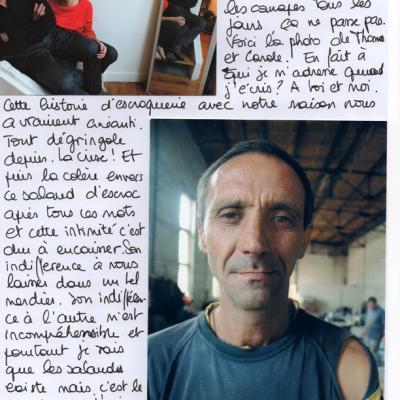 les canapés tous les
jours ça ne passe pas.
Voici la photo de Thomas
et Carole. En fait à
qui je m'adresse quand
j'écris? A toi et moi.
Cette histoire d'escroquerie avec notre maison nous
a vraiment anéanti.
Tout dégringole
depuis. La crise! Et
puis la colère envers
ce salaud d'escroc
après tous ces mots
et cette intimité c'est
dur à encaisser. Son
indifférence à nous
laisser dans un tel
merdier. Son indifféren-
ce à l'autre m'est
incompréhensible et
pourtant je sais
que les salauds
existe mais c'est le